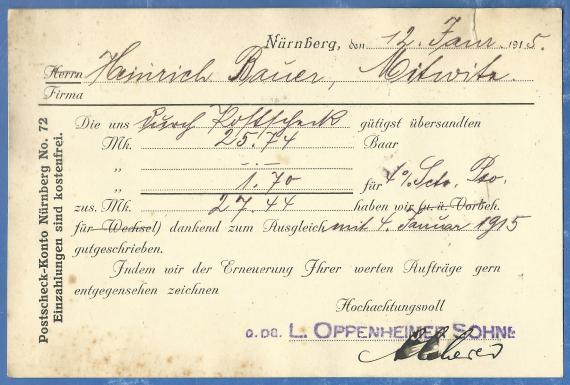 Nürnberg, den 12. Janr. 1915.
Herrn Heinrich Bauer, Mitwitz.
Firma
Die uns durch Postscheck gütigst übersandten
Mk. 25.74 Baar
„ —.—
„ 1.70 für 4% Scto. Pro.
zus. Mk. 27.44 haben wir (u. ü. Vorbeh.
für Wechsel) dankend zum Ausgleich mit 4. Januar 1915
gutgeschrieben.
Indem wir der Erneuerung Ihrer werten Aufträge gern
entgegensehen zeichnen
Hochachtungsvoll
L. OPPENHEIMER SÖHNE
Postscheck-Konto Nürnberg No. 72
Einzahlungen sind kostenfrei.